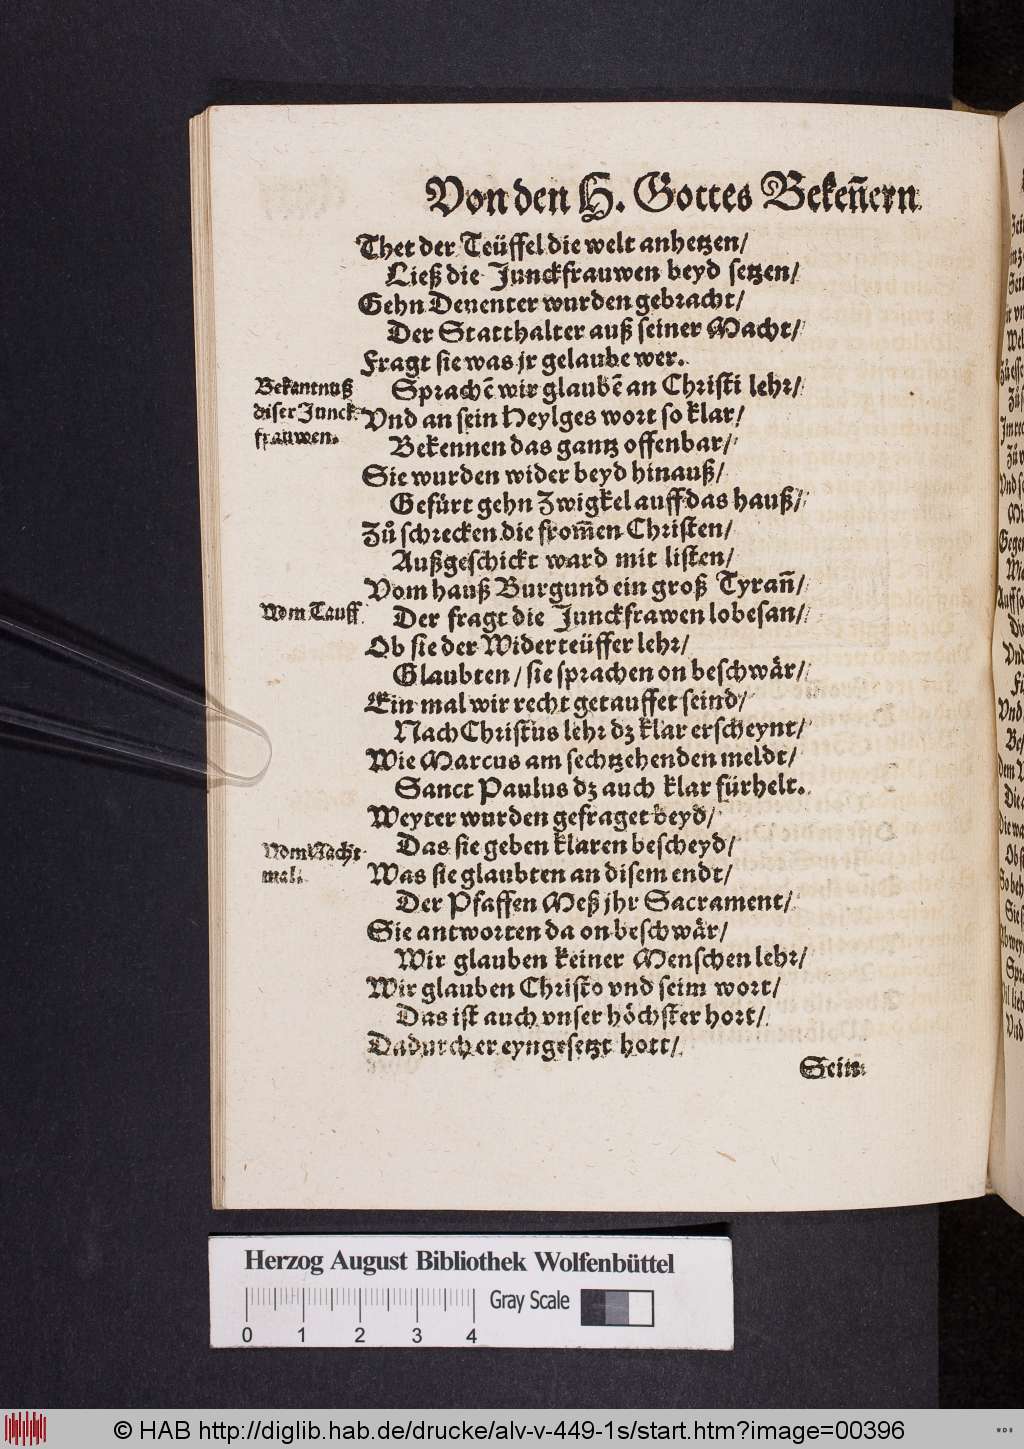 Von den H. Gottes Bekeñern
Thet der Teüffel die welt anhetzen/
Ließ die Junckfrauwen beyd setzen/
Gehn Deuenter wurden gebracht/
Der Statthalter auß seiner Macht/
Fragt sie was jr gelaube wer.
Bekantnuß
diser Junck-
frauwen.
Sprachē wir glaubē an Christi lehr/
Vnd an sein Heylges wort so klar/
Bekennen das gantz offenbar/
Sie wurden wider beyd hinauß/
Gefürt gehn Zwigkel auff das hauß/
Zů schrecken die from̃en Christen/
Außgeschickt ward mit listen/
Vom hauß Burgund ein groß Tyrañ/
Vom Tauff.
Der fragt die Junckfrawen lobesan/
Ob sie der Widerteüffer lehr/
Glaubten / sie sprachen on beschwär/
Ein mal wir recht getauffet seind/
Nach Christus lehr dz klar erscheynt/
Wie Marcus am sechtzehenden meldt/
Sanct Paulus dz auch klar fürhelt.
Weyter wurden gefraget beyd/
Vom Nacht
mal.
Das sie geben klaren bescheyd/
Was sie glaubten an disem endt/
Der Pfaffen Meß jhr Sacrament/
Sie antworten da on beschwär/
Wir glauben keiner Menschen lehr/
Wir glauben Christo vnd seim wort/
Das ist auch vnser höchster hort/
Dadurch er eyngesetzt hott/
Sein
Herzog August Bibliothek Wolfenbüttel
Gray Scale
0 1 2 3 4
© HAB http://diglib.hab.de/drucke/alv-v-449-1s/start.htm?image=00396